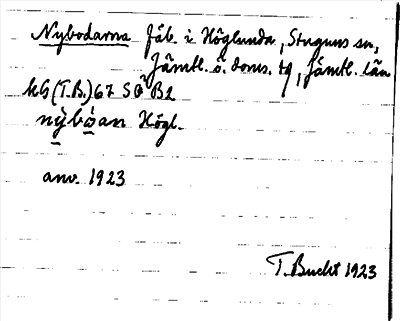 Nybodarna Fäb. i Höglunda, Stuguns sn,
Jämtl. ö. doms. tg, Jämtl. län
KG (T.B.) 67 SO B2
nỳbó̱an Högl.
anv. 1923
T. Bucht 1923